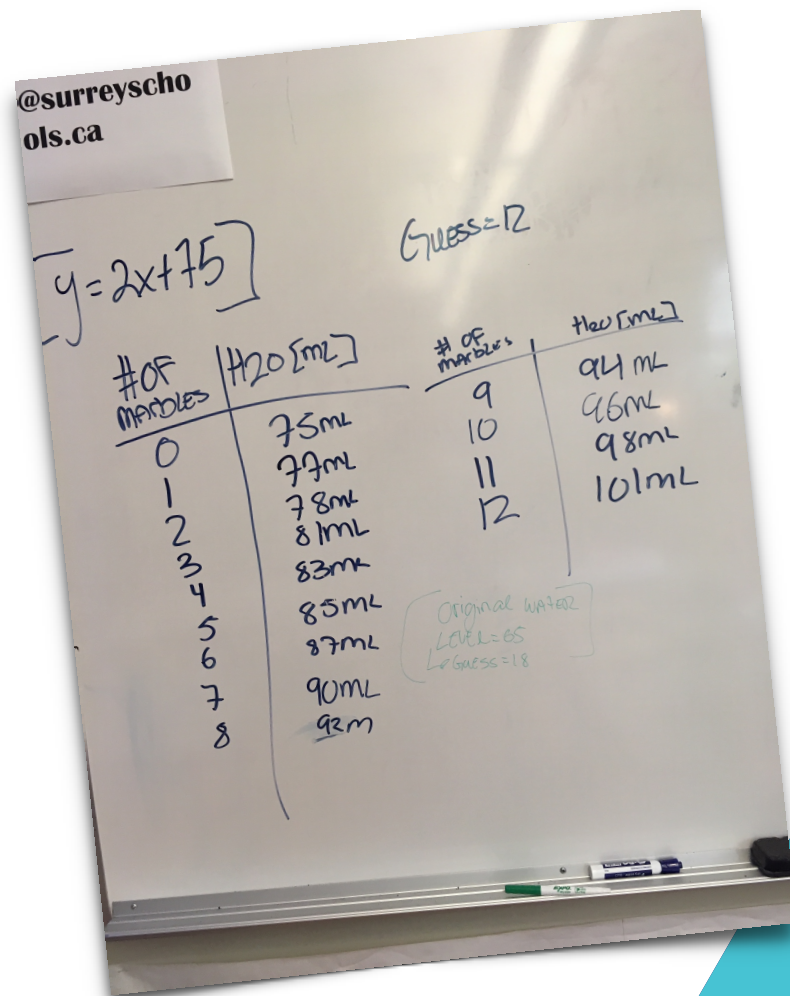 @surreyscho
ols.ca
[y=2x+75]
Guess=12
# OF MARBLES | H2O [mL]
0 75mL
1 77mL
2 78mL
3 81mL
4 83mL
5 85mL
6 87mL
7 90mL
8 92m
# OF MARBLES | H2O [mL]
9 94 mL
10 96mL
11 98mL
12 101mL
Original WATER
LEVEL=65
GUESS=18